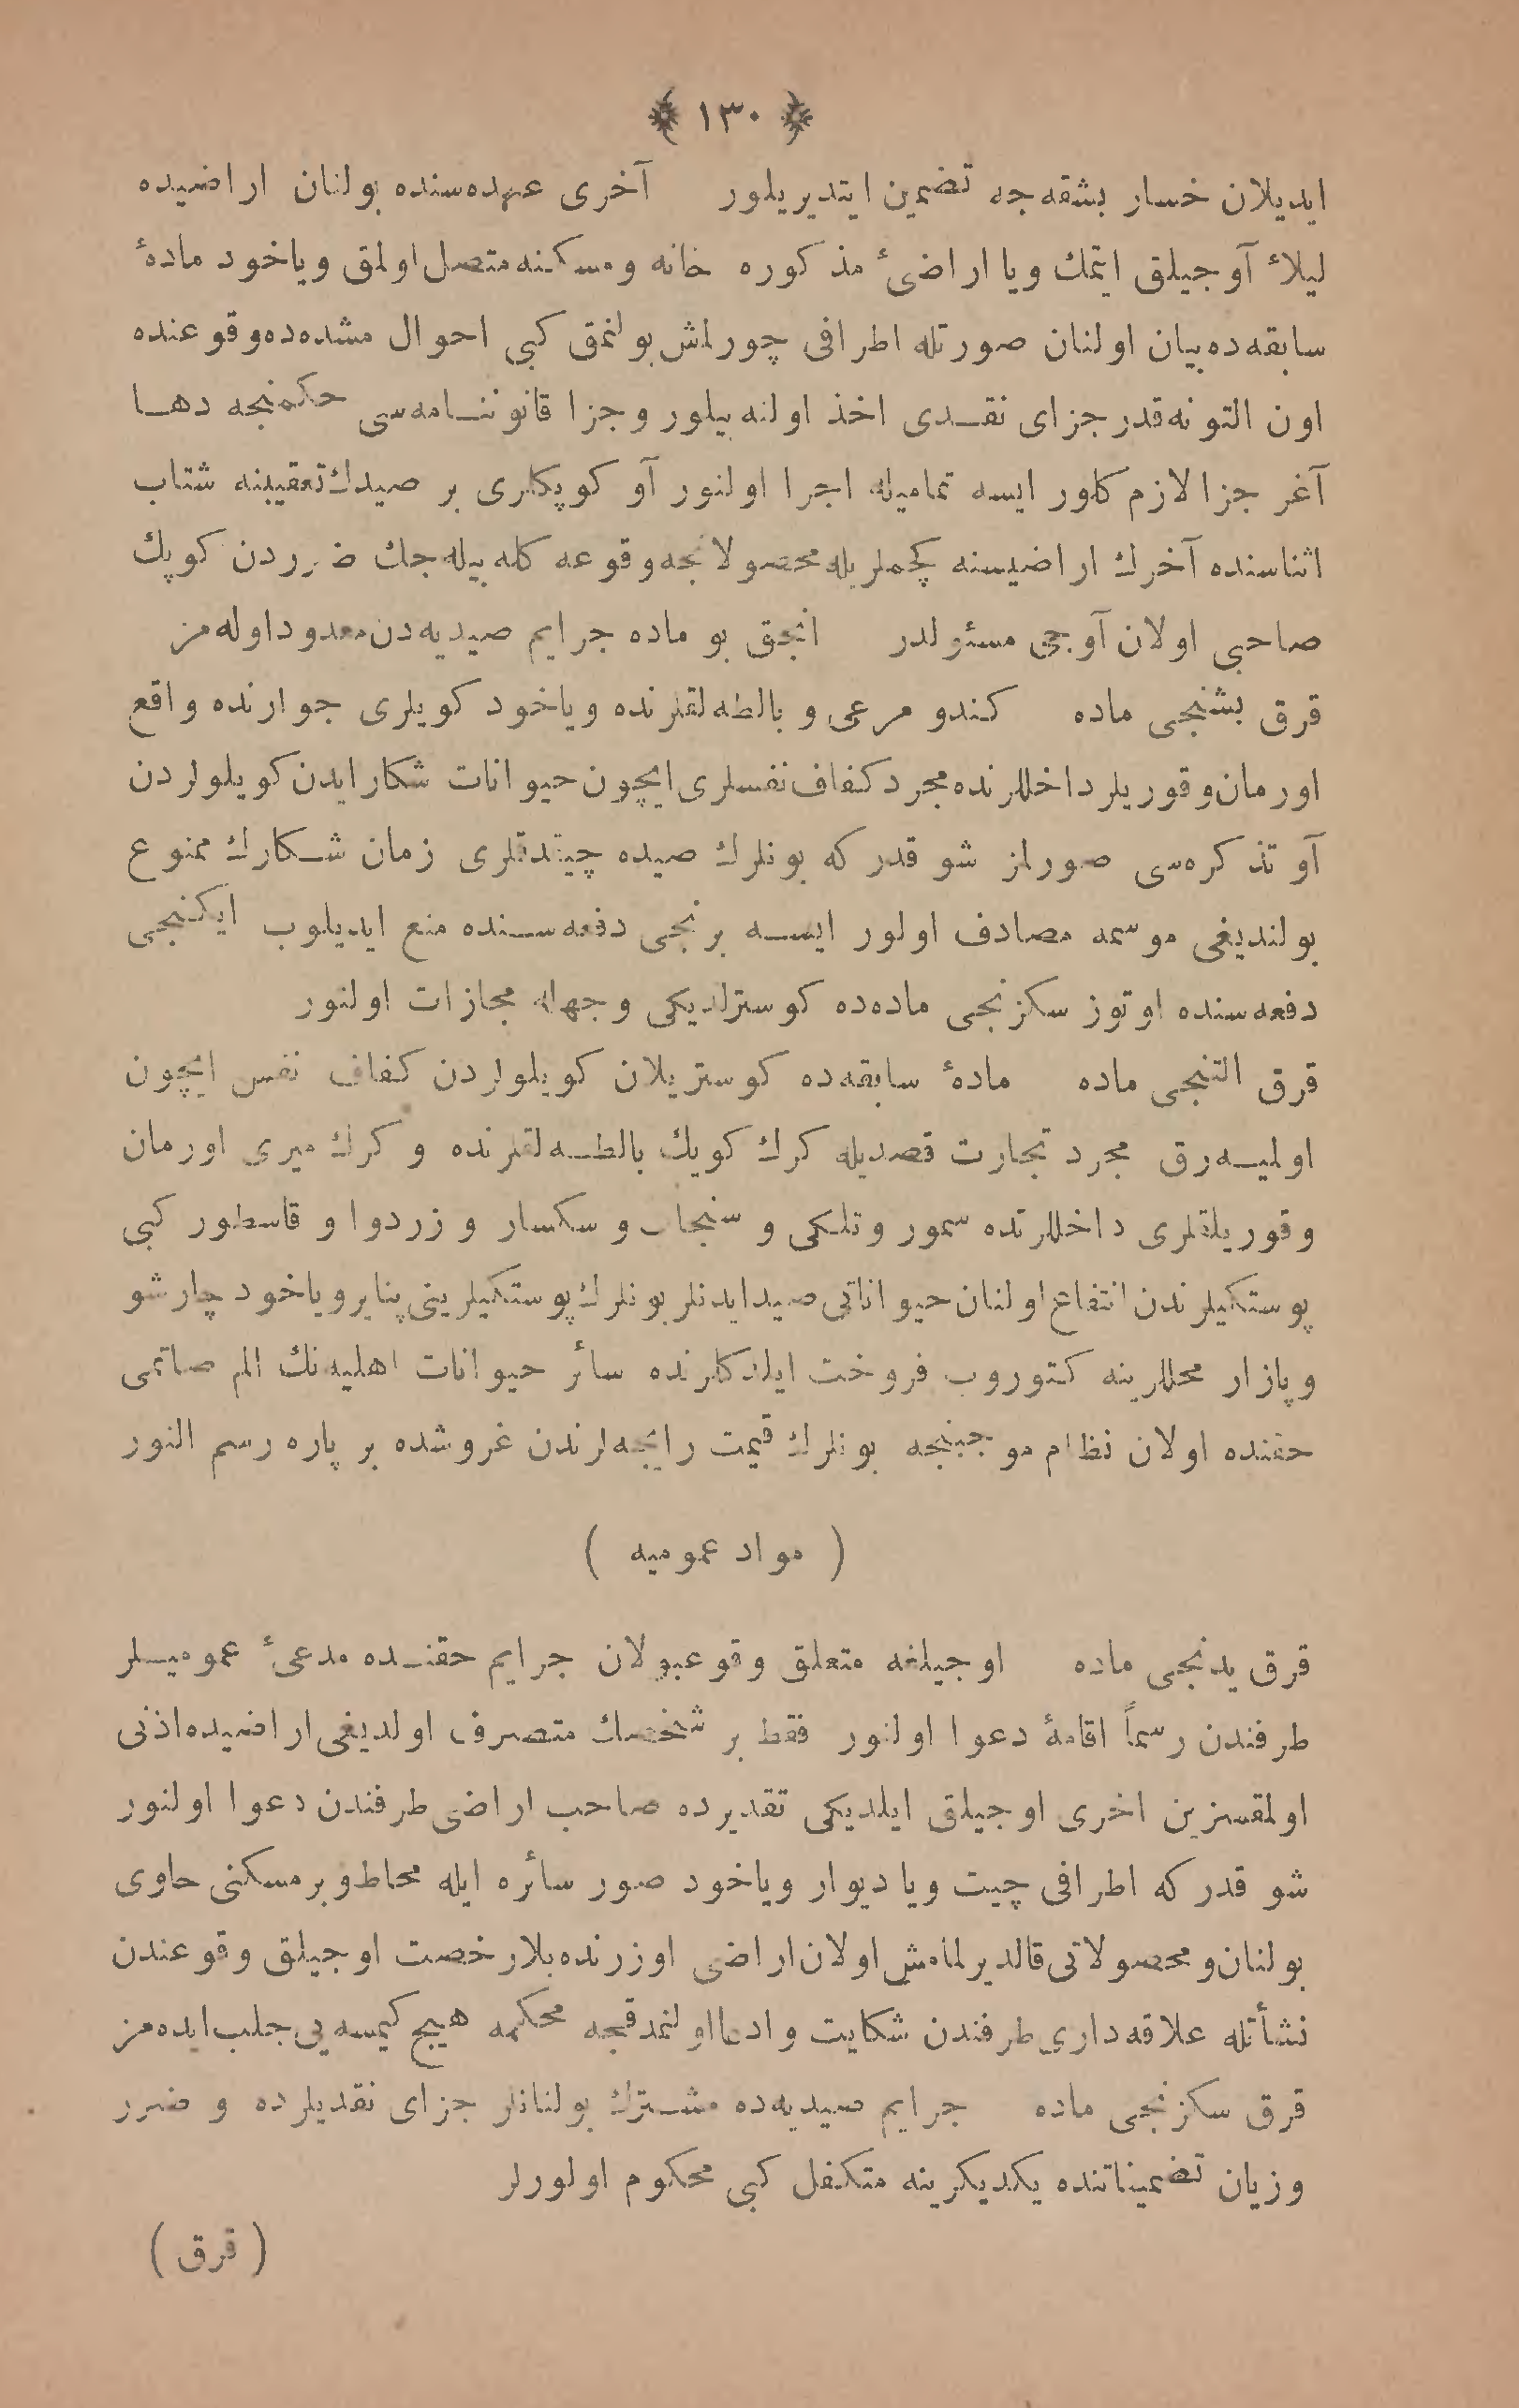 ﴿ ١٣٠ ﴾
ايديلان خسار بشقه‌جه تضمين ايتديريلور آخرى عهده‌سنده بولنان اراضيده
ليلاً آوجيلق ايتمك ويا اراضئ مذكوره خانه ومسكنه متصل اولمق وياخود مادۀ
سابقه‌ده بيان اولنان صورتله اطرافى چورلمش بولنمق كبى احوال مشدده‌ده وقوعنده
اون التونه قدر جزاى نقدى اخذ اولنه بيلور وجزا قانوننامه‌سى حكمنجه دها
آغر جزا لازم كلور ايسه تماميله اجرا اولنور آو كوپكلرى بر صيدك تعقيبنه شتاب
اثناسنده آخرك اراضيسنه كچملريله محصولاتجه وقوعه كله بيله‌جك ضرردن كوپك
صاحبى اولان آوجى مسئولدر انجق بو ماده جرايم صيديه‌دن معدود اوله‌مز
قرق بشنجى ماده كندو مرعى و بالطه‌لقلرنده وياخود كويلرى جوارنده واقع
اورمان وقوريلر داخللرنده مجرد كفاف نفسلرى ايچون حيوانات شكار ايدن كويلولردن
آو تذكره‌سى صورلمز شو قدر كه بونلرك صيده چيقدقلرى زمان شكارك ممنوع
بولنديغى موسمه مصادف اولور ايسه برنجى دفعه‌سنده منع ايديلوب ايكنجى
دفعه‌سنده اوتوز سكزنجى ماده‌ده كوسترلديكى وجهله مجازات اولنور
قرق التنجى ماده مادۀ سابقه‌ده كوستريلان كويلولردن كفاف نفس ايچون
اوليه‌رق مجرد تجارت قصديله كرك كويك بالطه‌لقلرنده و كرك ميرى اورمان
وقوريلقلرى داخللرنده سمور وتلكى و سنجاب و سكسار و زردوا و قاسطور كبى
پوستكيلرندن انتفاع اولنان حيواناتى صيد ايدنلر بونلرك پوستكيلرينى پناير وياخود چارشو
وپازار محللرينه كتوروب فروخت ايلدكلرنده سائر حيوانات اهليه‌نك الم صاتمى
حقنده اولان نظام موجبنجه بونلرك قيمت رايجه‌لرندن غروشده بر پاره رسم النور
( مواد عموميه )
قرق يدنجى ماده اوجيلغه متعلق وقوعبولان جرايم حقنده مدعئ عموميلر
طرفندن رسماً اقامۀ دعوا اولنور فقط بر شخصك متصرف اولديغى اراضيده اذنى
اولمقسزين اخرى اوجيلق ايلديكى تقديرده صاحب اراضى طرفندن دعوا اولنور
شو قدر كه اطرافى چيت ويا ديوار وياخود صور سائره ايله محاط وبر مسكنى حاوى
بولنان ومحصولاتى قالديرلمامش اولان اراضى اوزرنده بلارخصت اوجيلق وقوعندن
نشأتله علاقه‌دارى طرفندن شكايت وادعا اولنمدقجه محكمه هيچ كيمسه‌يى جلب ايده‌مز
قرق سكزنجى ماده جرايم صيديه‌ده مشترك بولنانلر جزاى نقديلرده و ضرر
وزيان تضميناتنده يكديكرينه متكفل كبى محكوم اولورلر
( قرق )